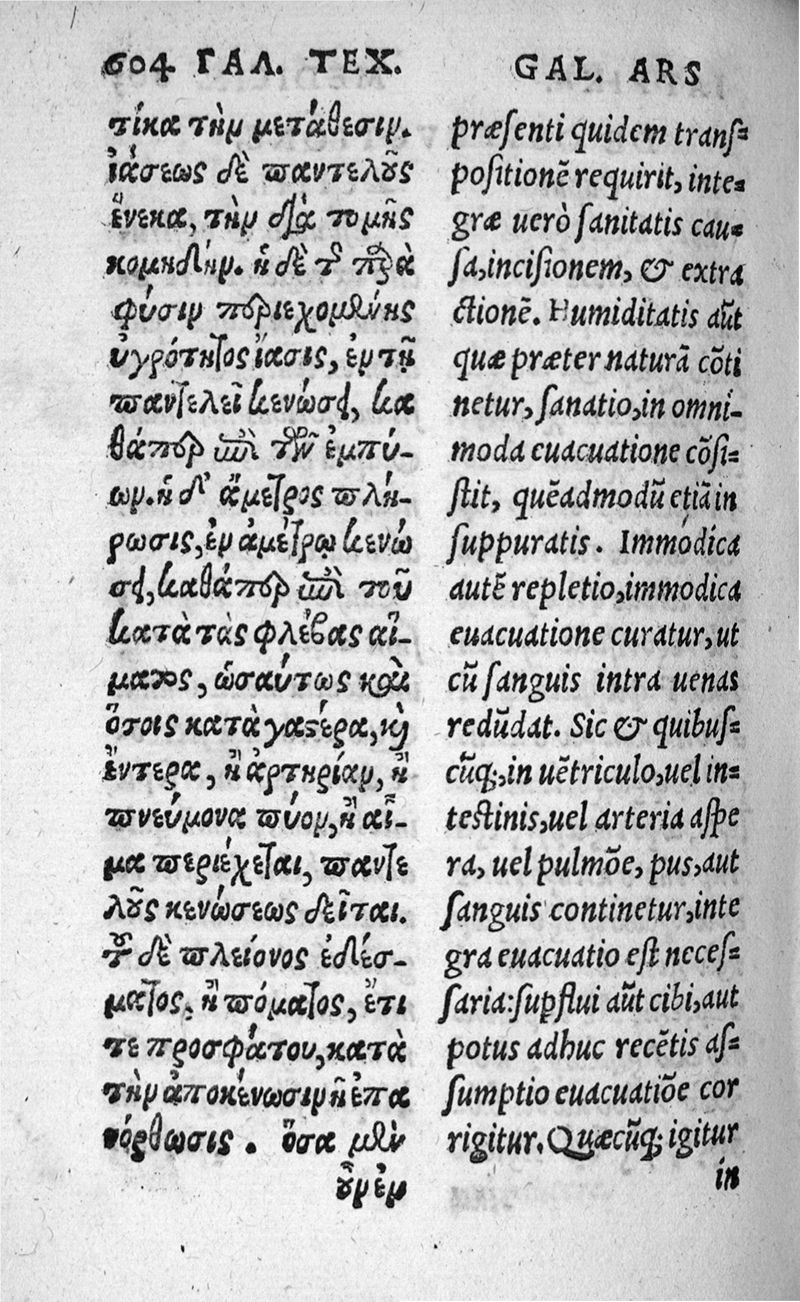 604 ΓΑΛ. ΤΕΧ.
τίκα τὴν μετάθεσιν.
ἰάσεως δὲ παντελοῦς
ἕνεκα, τὴν διὰ τομῆς
κομιδήν. ἡ δὲ τῆς παρὰ
φύσιν περιεχομένης
ὑγρότητος ἴασις, ἐν τῇ
παντελεῖ κενώσει, κα
θάπερ ἐπὶ τῶν ἐμπύ-
ων. ἡ δ' ἄμετρος πλή-
ρωσις, ἐν ἀμέτρῳ κενώ
σει, καθάπερ ἐπὶ τοῦ
κατὰ τὰς φλέβας αἵ-
ματος, ὡσαύτως καὶ
ὅτοις κατὰ γαστέρα, καὶ
ἔντερα, ἢ ἀρτηρίαν, ἢ
πνεύμονα πύον, ἢ αἷ-
μα περιέχεται, παντε
λοῦς κενώσεως δεῖται.
τοῦ δὲ πλείονος ἐδέσ-
ματος, ἢ πόματος, ἔτι
τε προσφάτου, κατὰ
τὴν ἀποκένωσιν ἢ ἐπα
νόρθωσις. ὅσα μὲν
οὖν ἐν
GAL. ARS
præsenti quidem trans=
positionē requirit, inte=
græ uerò sanitatis cau=
sa, incisionem, & extra
ctionē. Humiditatis aūt
quæ præter naturā cōti
netur, sanatio, in omni-
moda euacuatione cōsi=
stit, quēadmodū etiā in
suppuratis. Immodica
autē repletio, immodica
euacuatione curatur, ut
cū sanguis intra uenas
redūdat. Sic & quibus=
cūq;, in uētriculo, uel in=
testinis, uel arteria aspe
ra, uel pulmōe, pus, aut
sanguis continetur, inte
gra euacuatio est neces=
saria: supflui aūt cibi, aut
potus adhuc recētis as=
sumptio euacuatiōe cor
rigitur. Quæcūq; igitur
in